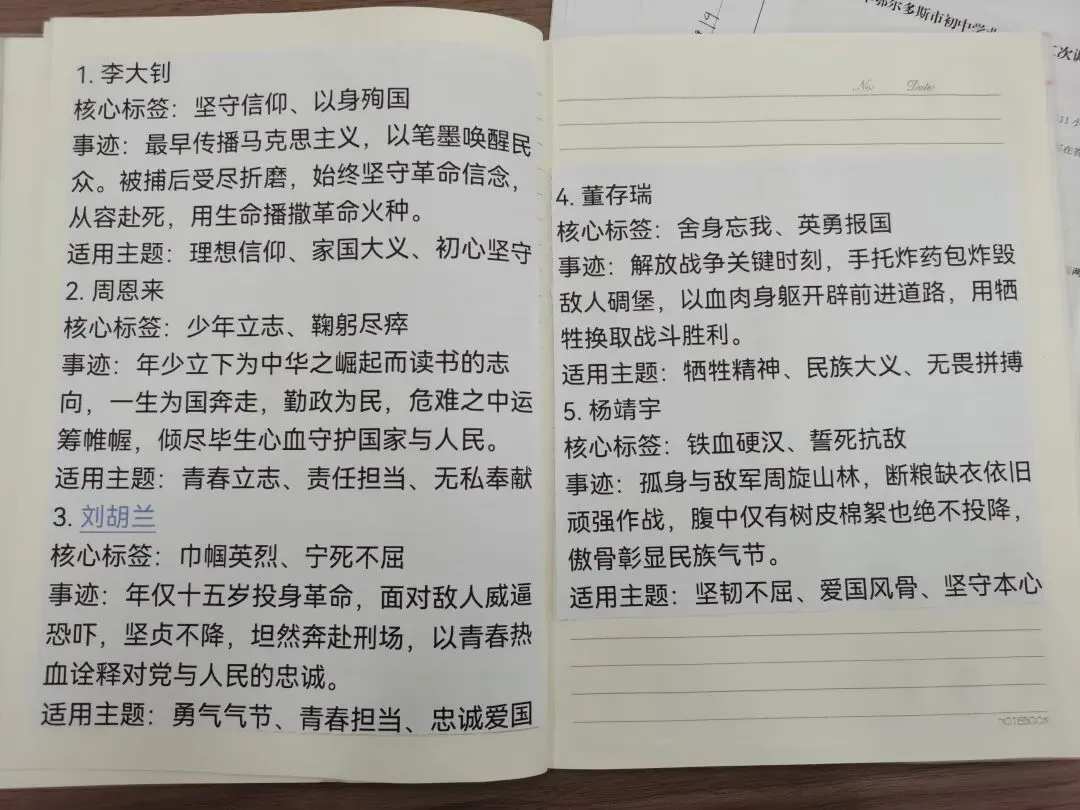 1. 李大钊
核心标签：坚守信仰、以身殉国
事迹：最早传播马克思主义，以笔墨唤醒民
众。被捕后受尽折磨，始终坚守革命信念，
从容赴死，用生命播撒革命火种。
适用主题：理想信仰、家国大义、初心坚守
2. 周恩来
核心标签：少年立志、鞠躬尽瘁
事迹：年少立下为中华之崛起而读书的志
向，一生为国奔走，勤政为民，危难之中运
筹帷幄，倾尽毕生心血守护国家与人民。
适用主题：青春立志、责任担当、无私奉献
3. 刘胡兰
核心标签：巾帼英烈、宁死不屈
事迹：年仅十五岁投身革命，面对敌人威逼
恐吓，坚贞不降，坦然奔赴刑场，以青春热
血诠释对党与人民的忠诚。
适用主题：勇气气节、青春担当、忠诚爱国
No: Date:
4. 董存瑞
核心标签：舍身忘我、英勇报国
事迹：解放战争关键时刻，手托炸药包炸毁
敌人碉堡，以血肉身躯开辟前进道路，用牺
牲换取战斗胜利。
适用主题：牺牲精神、民族大义、无畏拼搏
5. 杨靖宇
核心标签：铁血硬汉、誓死抗敌
事迹：孤身与敌军周旋山林，断粮缺衣依旧
顽强作战，腹中仅有树皮棉絮也绝不投降，
傲骨彰显民族气节。
适用主题：坚韧不屈、爱国风骨、坚守本心
NOTEBOOK
鄂尔多斯市初中学